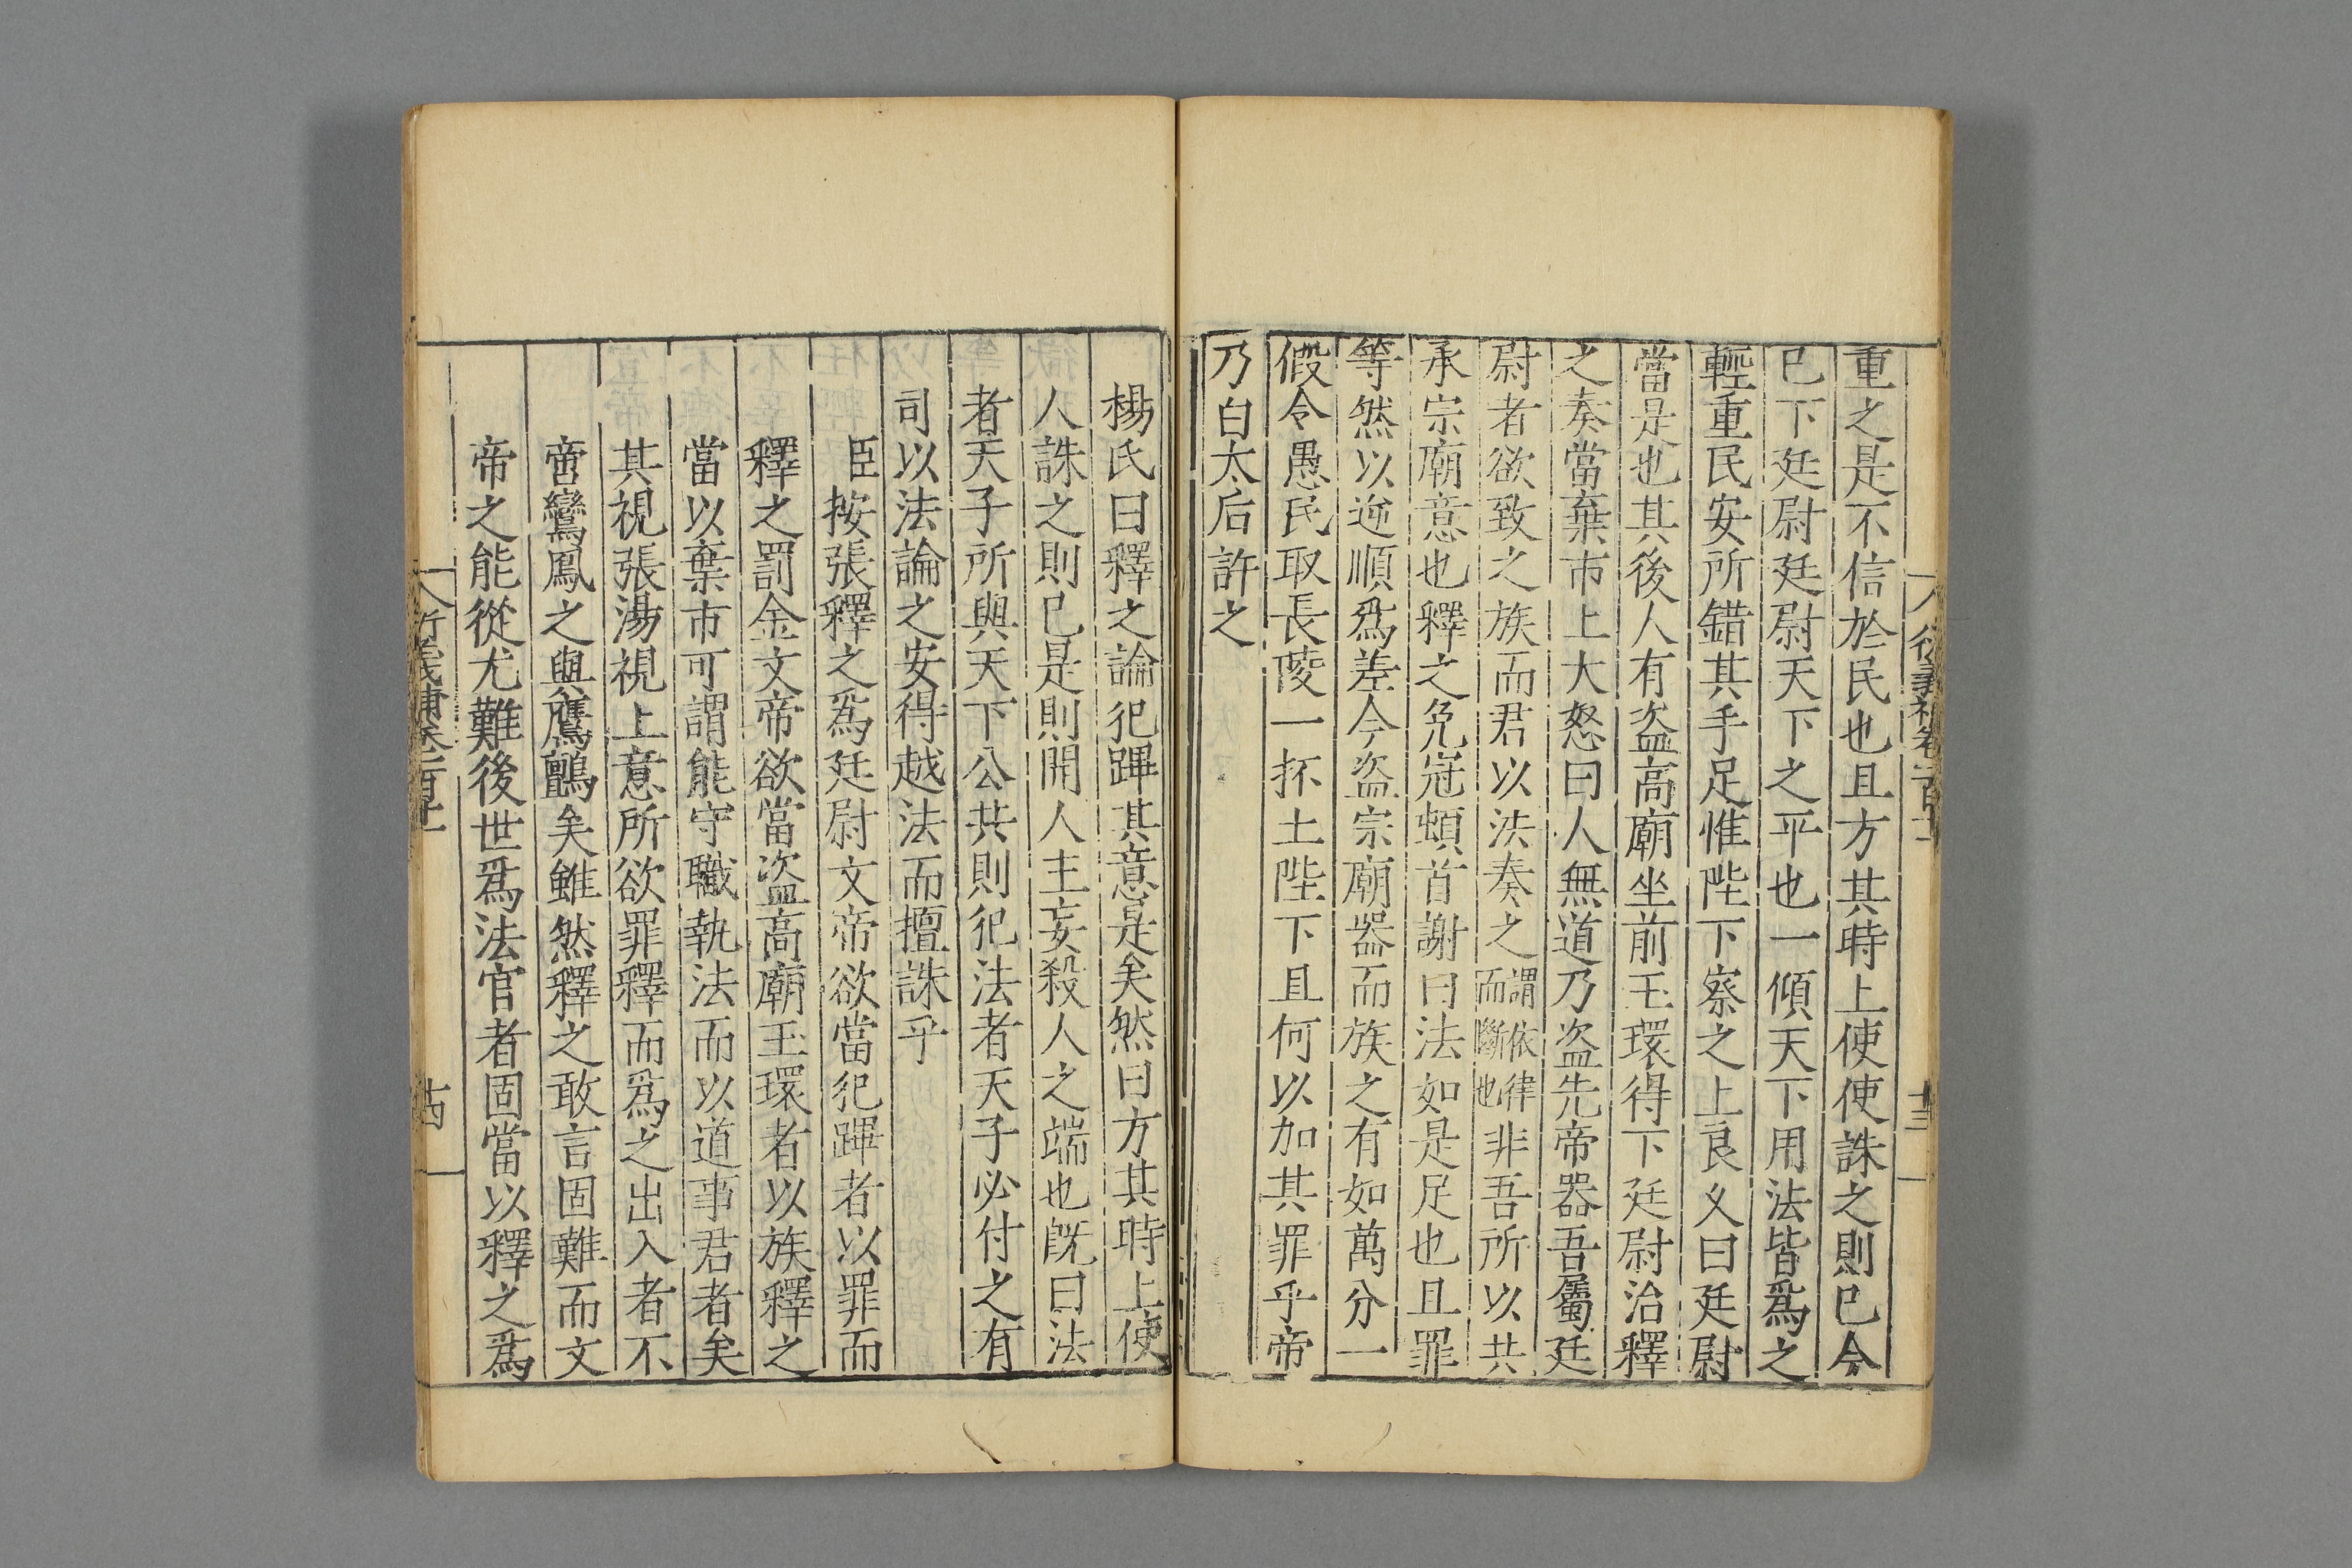 重之是不信於民也且方其時上使使誅之則已今
已下廷尉廷尉天下之平也一傾天下用法皆爲之
輕重民安所錯其手足惟陛下察之上良乆曰廷尉
當是也其後人有盗高廟坐前玉環得下廷尉治釋
之奏當棄市上大怒曰人無道乃盗先帝器吾屬廷
尉者欲致之族而君以法奏之謂依律而斷也非吾所以共
承宗廟意也釋之免冠頓首謝曰法如是足也且罪
等然以逆順爲差今盗宗廟器而族之有如萬分一
假令愚民取長陵一抔土陛下且何以加其罪乎帝
乃白太后許之
楊氏曰釋之論犯蹕其意是矣然曰方其時上使
人誅之則已是則開人主妄殺人之端也旣曰法
者天子所與天下公共則犯法者天子必付之有
司以法論之安得越法而擅誅乎
臣按張釋之爲廷尉文帝欲當犯蹕者以罪而
釋之罰金文帝欲當盗高廟玉環者以族釋之
當以棄市可謂能守職執法而以道事君者矣
其視張湯視上意所欲罪釋而爲之出入者不
啻鸞鳳之與鷹鸇矣雖然釋之敢言固難而文
帝之能從尤難後世爲法官者固當以釋之爲